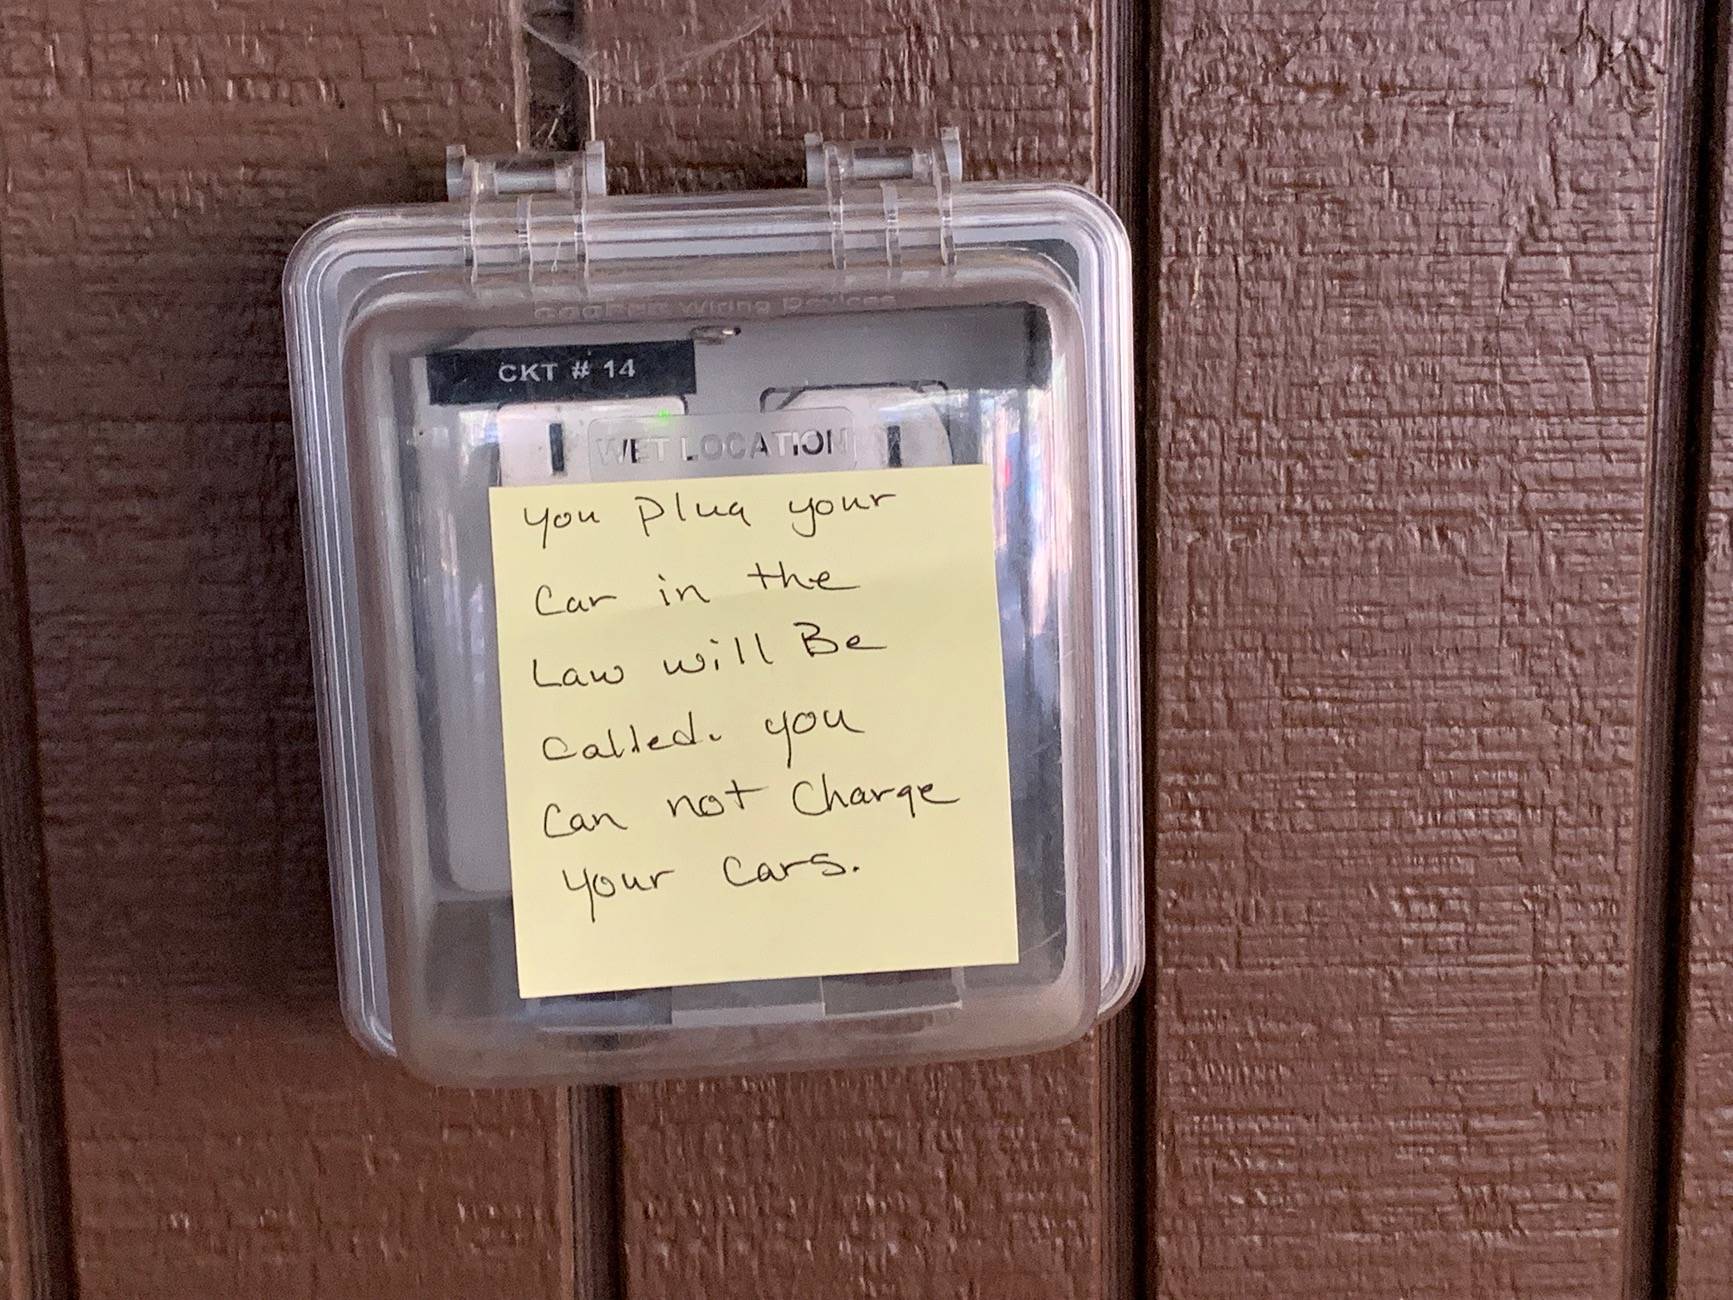 COOPER Wiring Devices
CKT # 14
WET LOCATION
you plug your
Car in the
Law will Be
Called. you
Can not Charge
your Cars.